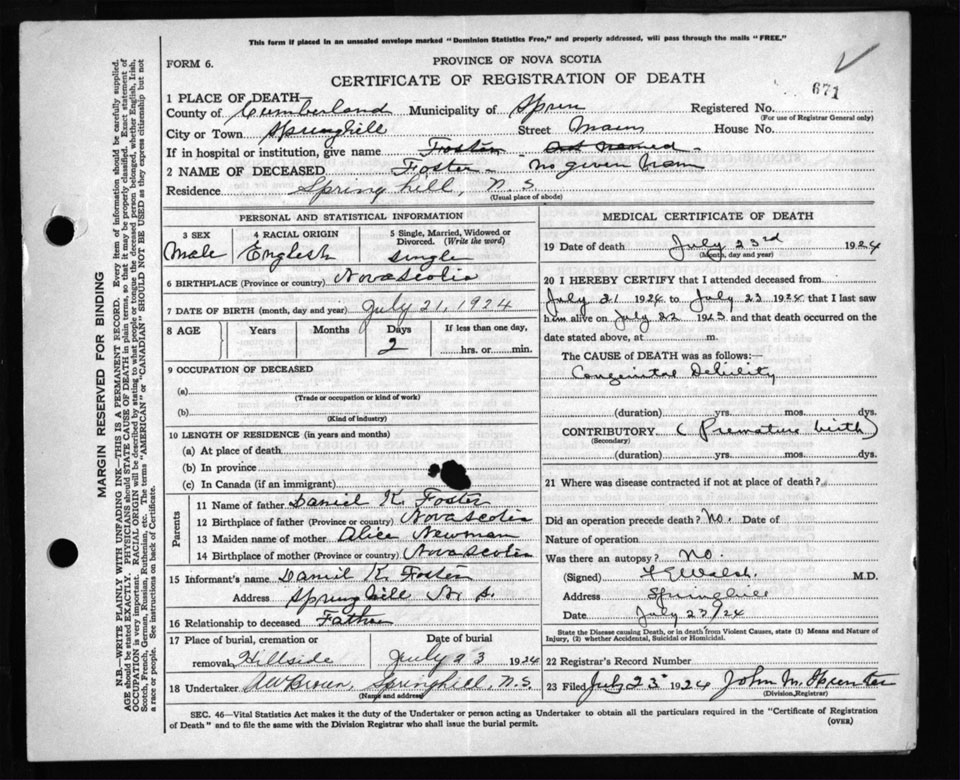 This form if placed in an unsealed envelope marked "Dominion Statistics Free," and properly addressed, will pass through the mails "FREE."
FORM 6.
PROVINCE OF NOVA SCOTIA
CERTIFICATE OF REGISTRATION OF DEATH
671
1 PLACE OF DEATH—
County of Cumberland Municipality of Registered No.
(For use of Registrar General only)
City or Town Springhill Street Main House No.
If in hospital or institution, give name Foster not named -
2 NAME OF DECEASED Foster - no given name
Residence Springhill, N.S.
(Usual place of abode)
PERSONAL AND STATISTICAL INFORMATION
3 SEX
Male
4 RACIAL ORIGIN
English
5 Single, Married, Widowed or Divorced. (Write the word)
Single
6 BIRTHPLACE (Province or country) Nova Scotia
7 DATE OF BIRTH (month, day and year) July 21, 1924
8 AGE Years Months Days If less than one day,
2 hrs. or min.
9 OCCUPATION OF DECEASED
(a)
(Trade or occupation or kind of work)
(b)
(Kind of industry)
10 LENGTH OF RESIDENCE (in years and months)
(a) At place of death
(b) In province
(c) In Canada (if an immigrant)
Parents
11 Name of father Daniel K. Foster
12 Birthplace of father (Province or country) Nova Scotia
13 Maiden name of mother Alice Newman
14 Birthplace of mother (Province or country) Nova Scotia
15 Informant's name Daniel K. Foster
Address Springhill N. S.
16 Relationship to deceased Father
17 Place of burial, cremation or Date of burial
removal Hillside July 23 1924
18 Undertaker A W Brown, Springhill, N.S.
(Name and address)
MEDICAL CERTIFICATE OF DEATH
19 Date of death July 23rd 1924
(Month, day and year)
20 I HEREBY CERTIFY that I attended deceased from
July 21 1924 to July 23 1924 that I last saw
him alive on July 22 1923 and that death occurred on the
date stated above, at m.
The CAUSE of DEATH was as follows:—
Congenital Debility
(duration) yrs. mos. dys.
CONTRIBUTORY (Premature birth)
(Secondary)
(duration) yrs. mos. dys.
21 Where was disease contracted if not at place of death?
Did an operation precede death? No. Date of
Nature of operation
Was there an autopsy? No.
(Signed) F E Walsh. M.D.
Address Springhill
Date July 23/24
State the Disease causing Death, or in death from Violent Causes, state (1) Means and Nature of
Injury, (2) whether Accidental, Suicidal or Homicidal.
22 Registrar's Record Number
23 Filed July 23 1924 John M.
(Division Registrar)
SEC. 46—Vital Statistics Act makes it the duty of the Undertaker or person acting as Undertaker to obtain all the particulars required in the "Certificate of Registration
of Death" and to file the same with the Division Registrar who shall issue the burial permit. (OVER)
MARGIN RESERVED FOR BINDING
N.B.—WRITE PLAINLY WITH UNFADING INK—THIS IS A PERMANENT RECORD. Every item of information should be carefully supplied.
AGE should be stated EXACTLY. PHYSICIANS should STATE CAUSE OF DEATH in plain terms, so that it may be properly classified. Exact statement of
OCCUPATION is very important. RACIAL ORIGIN will be described by stating to what people or tongue the deceased person belonged, whether English, Irish,
Scotch, French, German, Russian, Ruthenian, etc. The terms "AMERICAN" or "CANADIAN" SHOULD NOT BE USED as they express citizenship but not
a race or people. See instructions on back of Certificate.